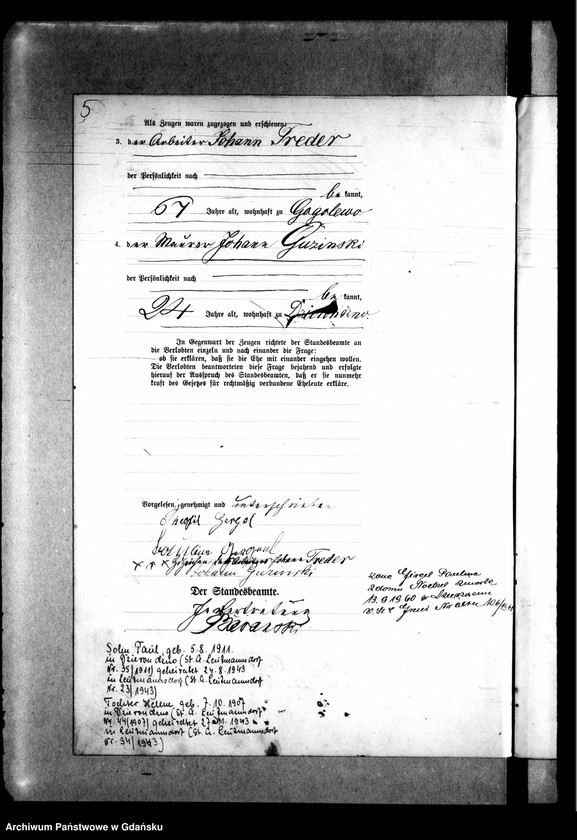 5
Als Zeugen waren zugezogen und erschienen:
3. der Arbeiter Johann Treder
der Persönlichkeit nach
be kannt,
67 Jahre alt, wohnhaft zu Gogolewo
4. der Maurer Johann Guzinski
der Persönlichkeit nach
be kannt,
24 Jahre alt, wohnhaft zu
In Gegenwart der Zeugen richtete der Standesbeamte an
die Verlobten einzeln und nach einander die Frage:
ob sie erklären, daß sie die Ehe mit einander eingehen wollen.
Die Verlobten beantworteten diese Frage bejahend und erfolgte
hierauf der Ausspruch des Standesbeamten, daß er sie nunmehr
kraft des Gesetzes für rechtmäßig verbundene Eheleute erkläre.
Vorgelesen, genehmigt und unterschrieben
+ + + Johann Treder
Johann Guzinski
Der Standesbeamte.
In Vertretung
Paulina
13.9.1960
Sohn Paul, geb. 5.8.1911
in Dzierondzno (St. A. Leutmannsdorf
Nr. 35/1911) geheiratet 24.8.1943
in Leutmannsdorf (St. A. Leutmannsdorf
Nr. 23/1943)
Tochter Helene geb. 7.10.1907
in Dzierondzno (St. A. Leutmannsdorf
Nr. 44/1907) geheiratet 27. 1943
in Leutmannsdorf (St. A. Leutmannsdorf
Nr. 34/1943)
Archiwum Państwowe w Gdańsku